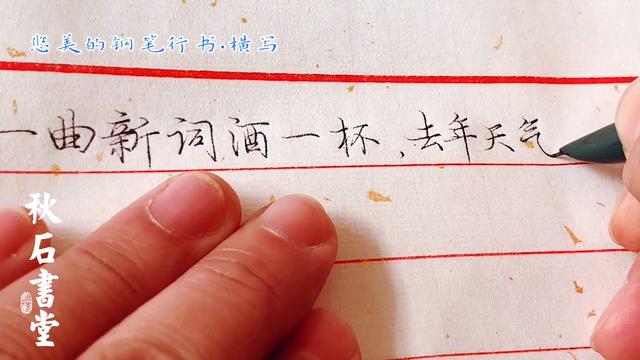 悠美的钢笔行书·横写
一曲新词酒一杯，去年天气
秋石書堂